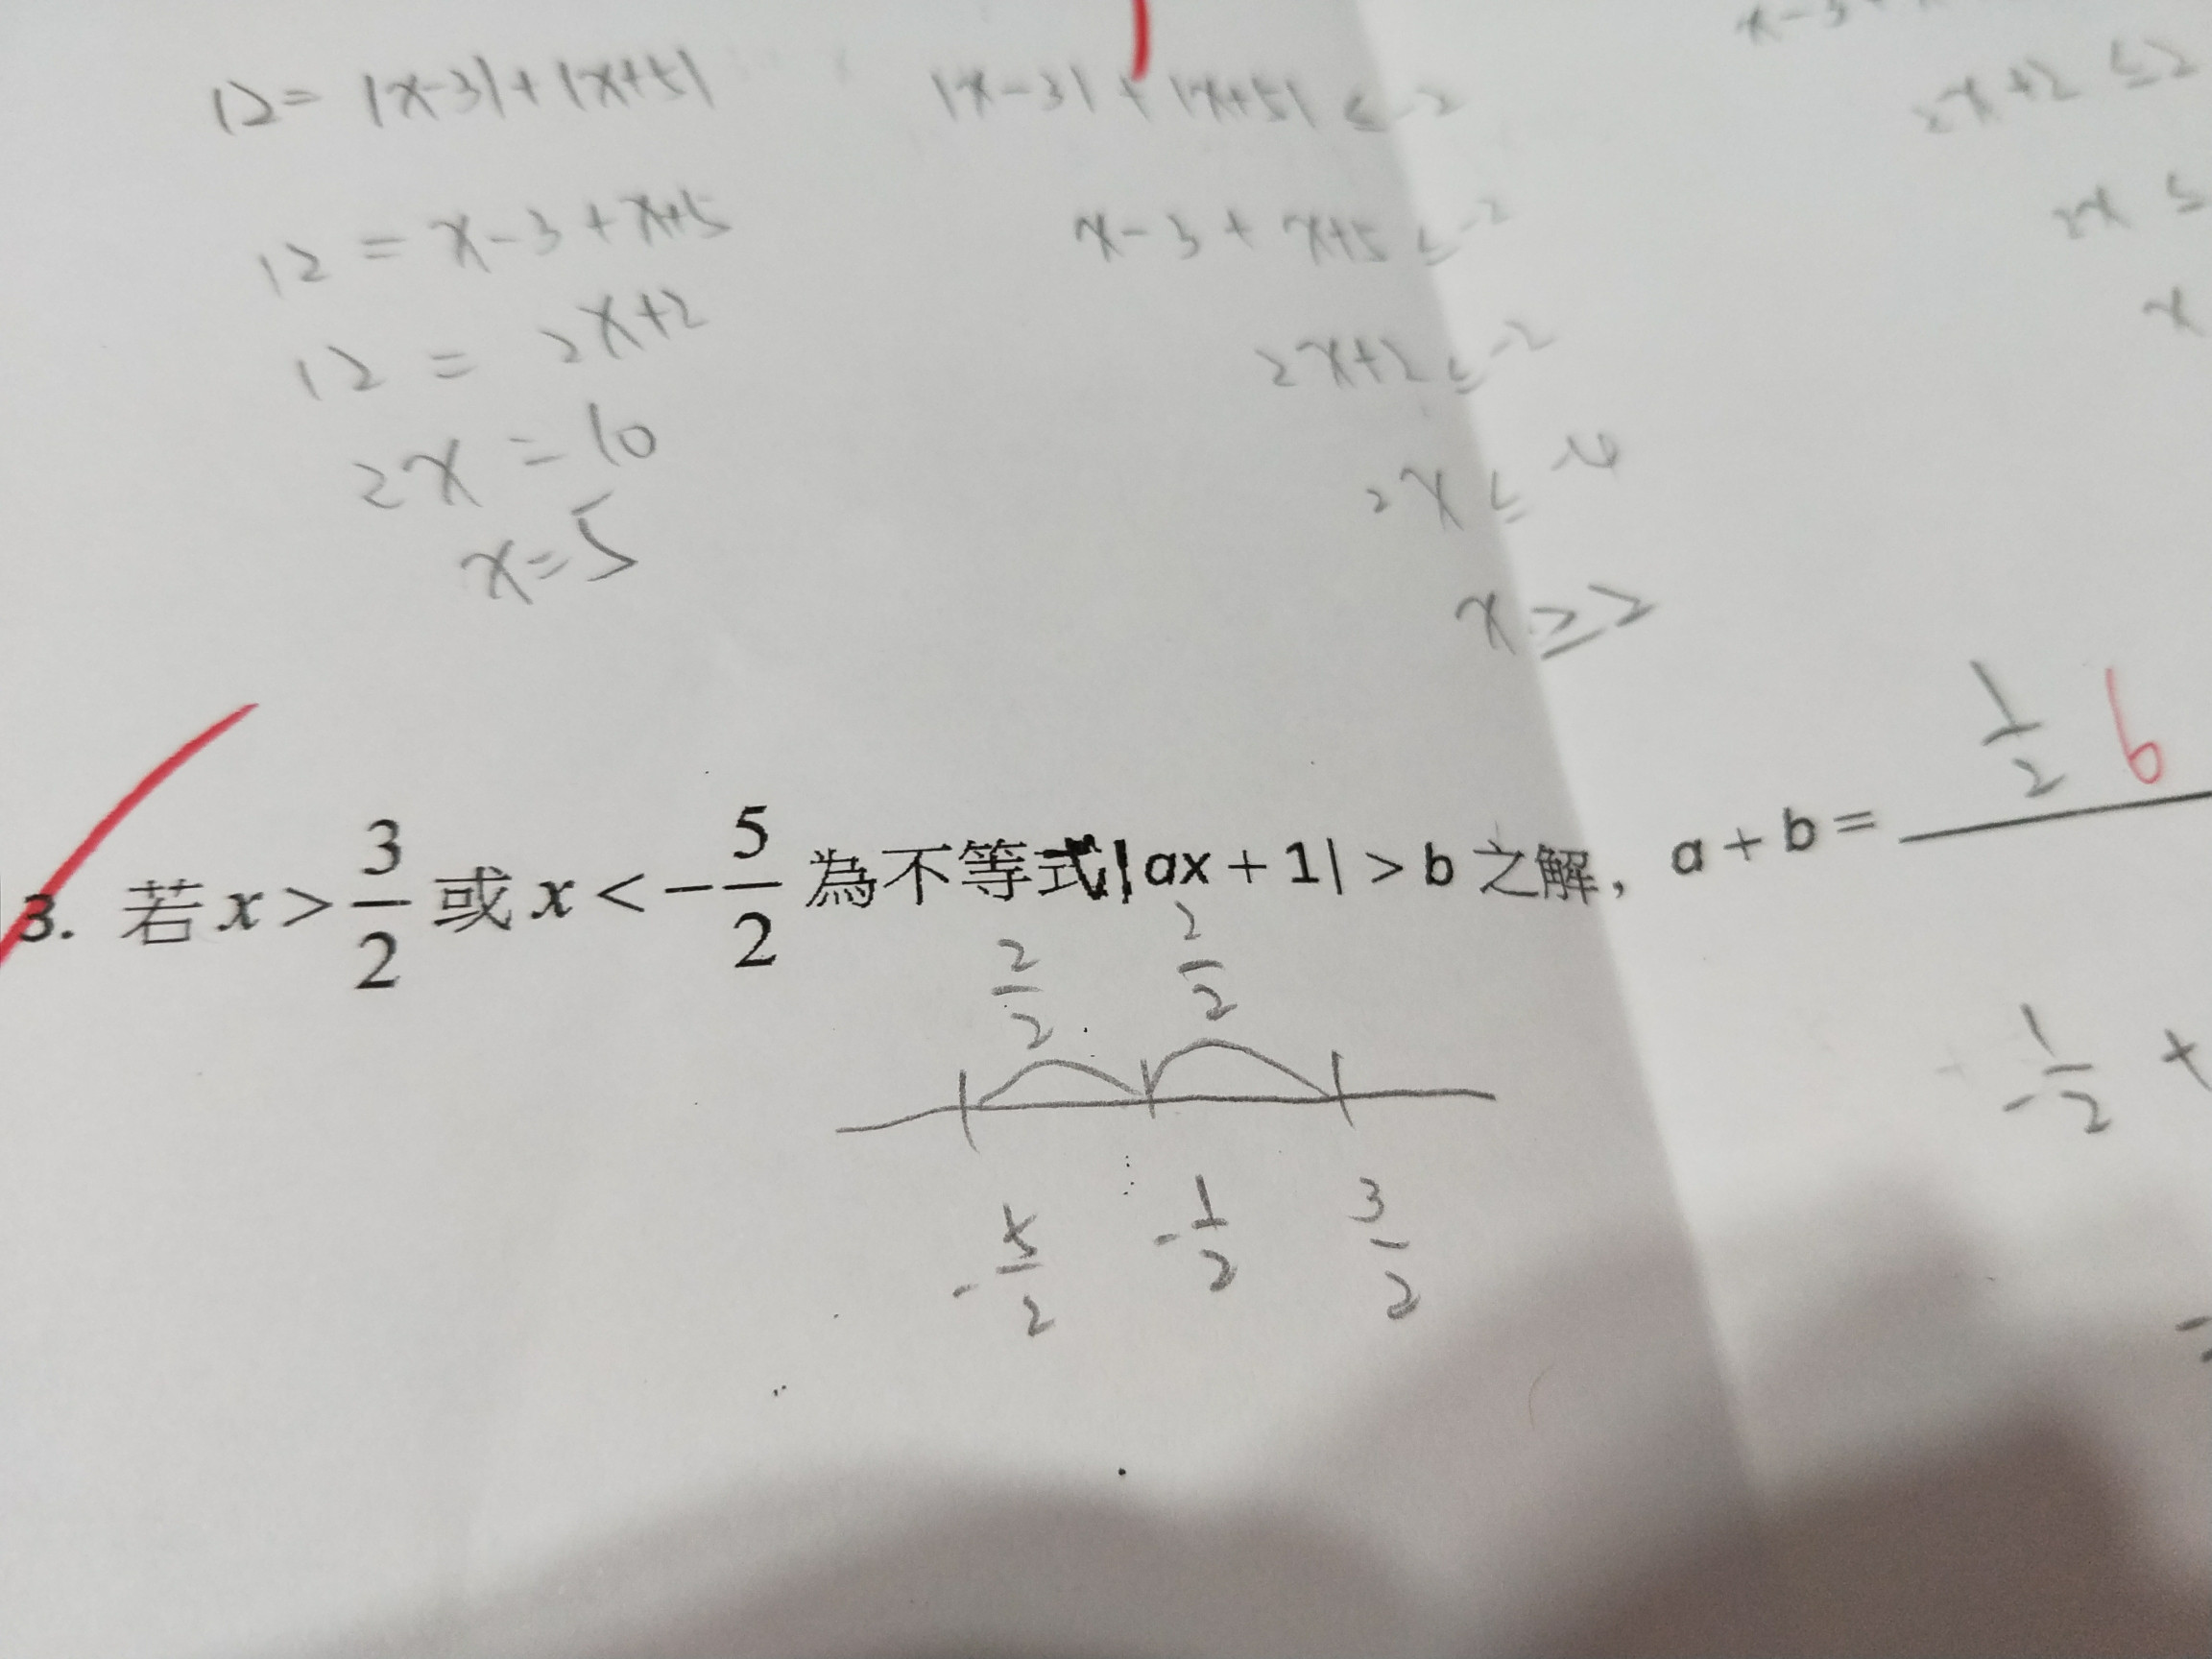 12 = |x-3| + |x+5|
|x-3| + |x+5| ≤ -2
2x+2 ≤ 2
12 = x-3+x+5
x-3 + x+5 ≤ -2
2x ≤
12 = 2x+2
2x+2 ≤ -2
x
2x = 10
2x ≤ -4
x=5
x ≥ 2
1/2 6
3. 若 x > 3/2 或 x < -5/2 為不等式|ax + 1| > b 之解，a + b =
2/2 2/2
-1/2 +
-5/2 -1/2 3/2